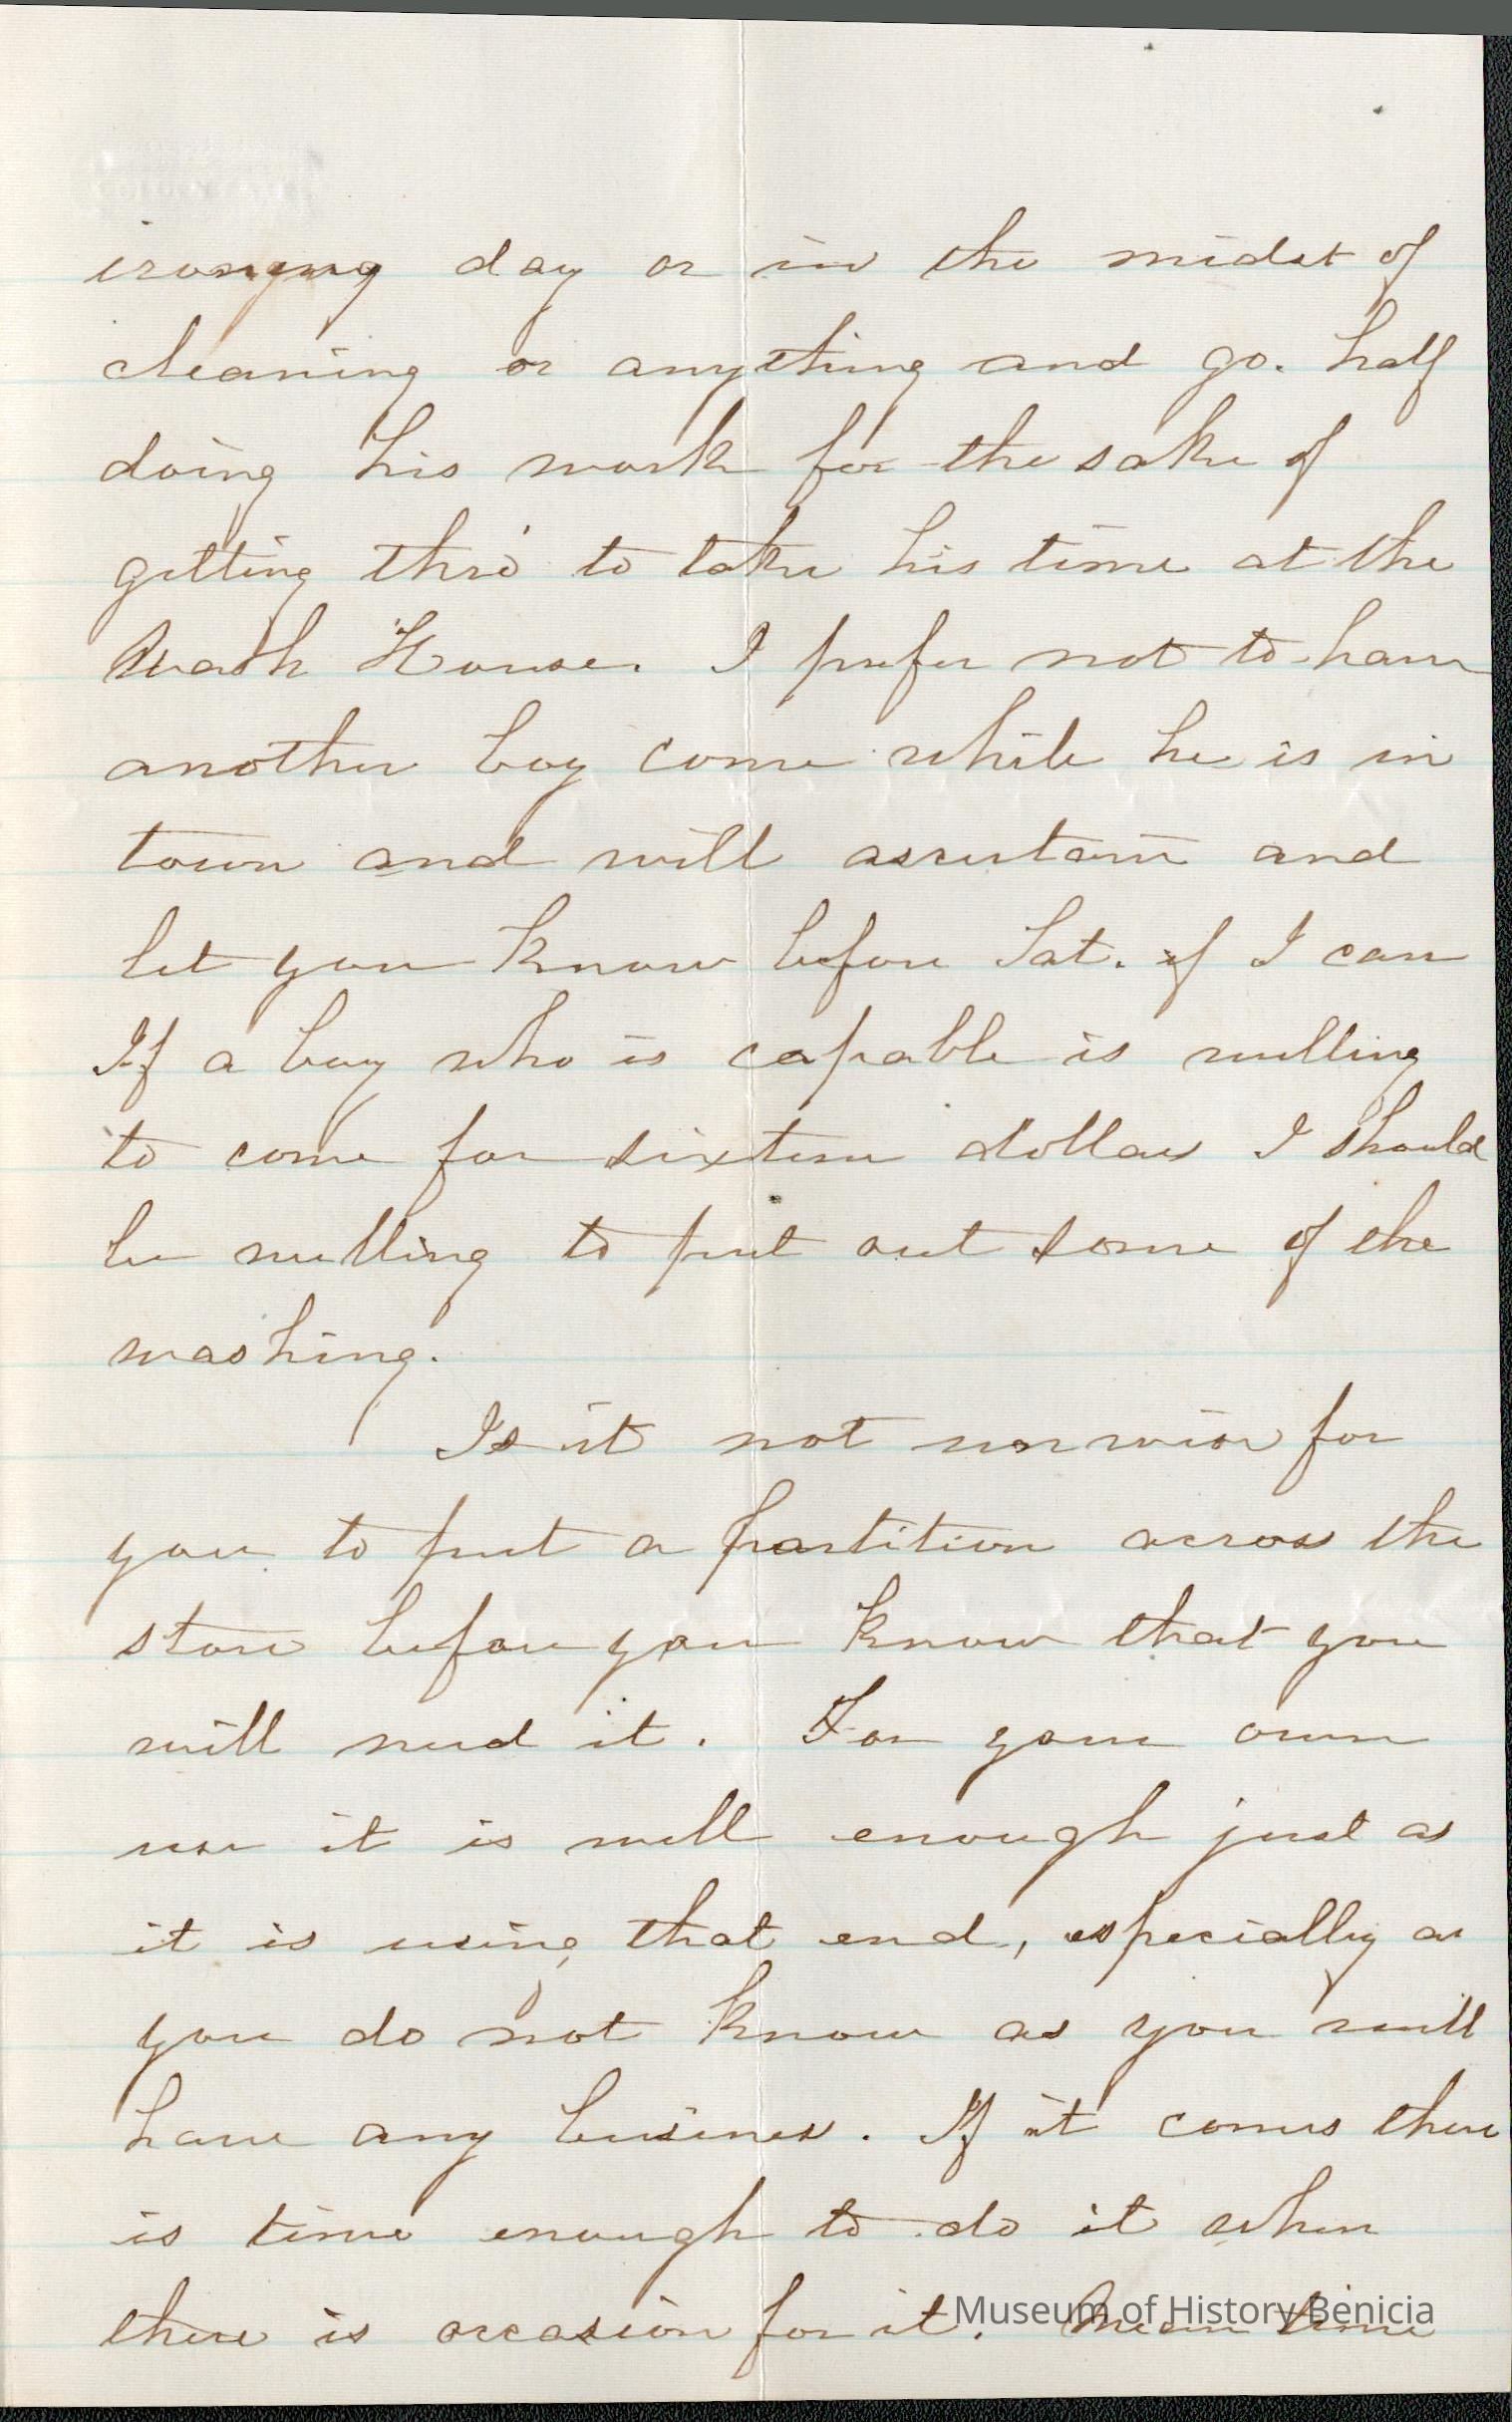 ironing day or in the midst of
cleaning or anything and go. half
doing his work for the sake of
getting thro' to take his time at the
Wash House. I prefer not to have
another boy come while he is in
town and will ascertain and
let you know before Sat. if I can
If a boy who is capable is willing
to come for sixteen dollars I should
be willing to put out some of the
washing.
Is it not unwise for
you to put a partition across the
store before you know that you
will need it. For your own
use it is well enough just as
it is using that end, especially as
you do not know as you will
have any business. If it comes there
is time enough to do it when
there is occasion for it. Mean time
Museum of History Benicia